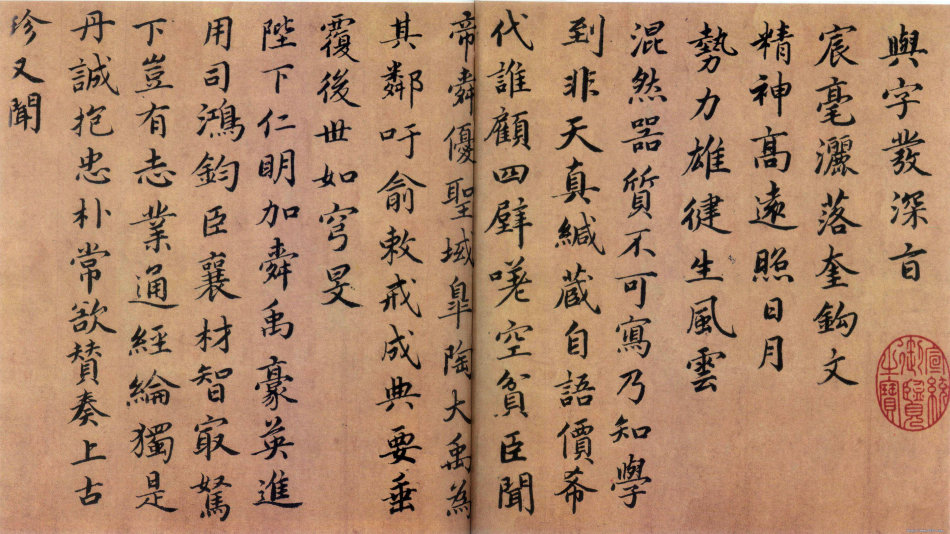 與字發深旨
宸毫灑落奎鈎文
精神高遠照日月
勢力雄健生風雲
混然器質不可寫乃知學
到非天真緘蔵自語價希
代誰顧四壁嗟空貧臣聞
帝舜優聖域臯陶大禹為
其鄰吁俞敕戒成典要垂
覆後世如穹旻
陛下仁明加舜禹豪英進
用司鴻鈞臣襄材智最駑
下豈有志業通經綸獨是
丹誠抱忠朴常欲贊奏上古
珍又聞
宣統
御覽
之寶